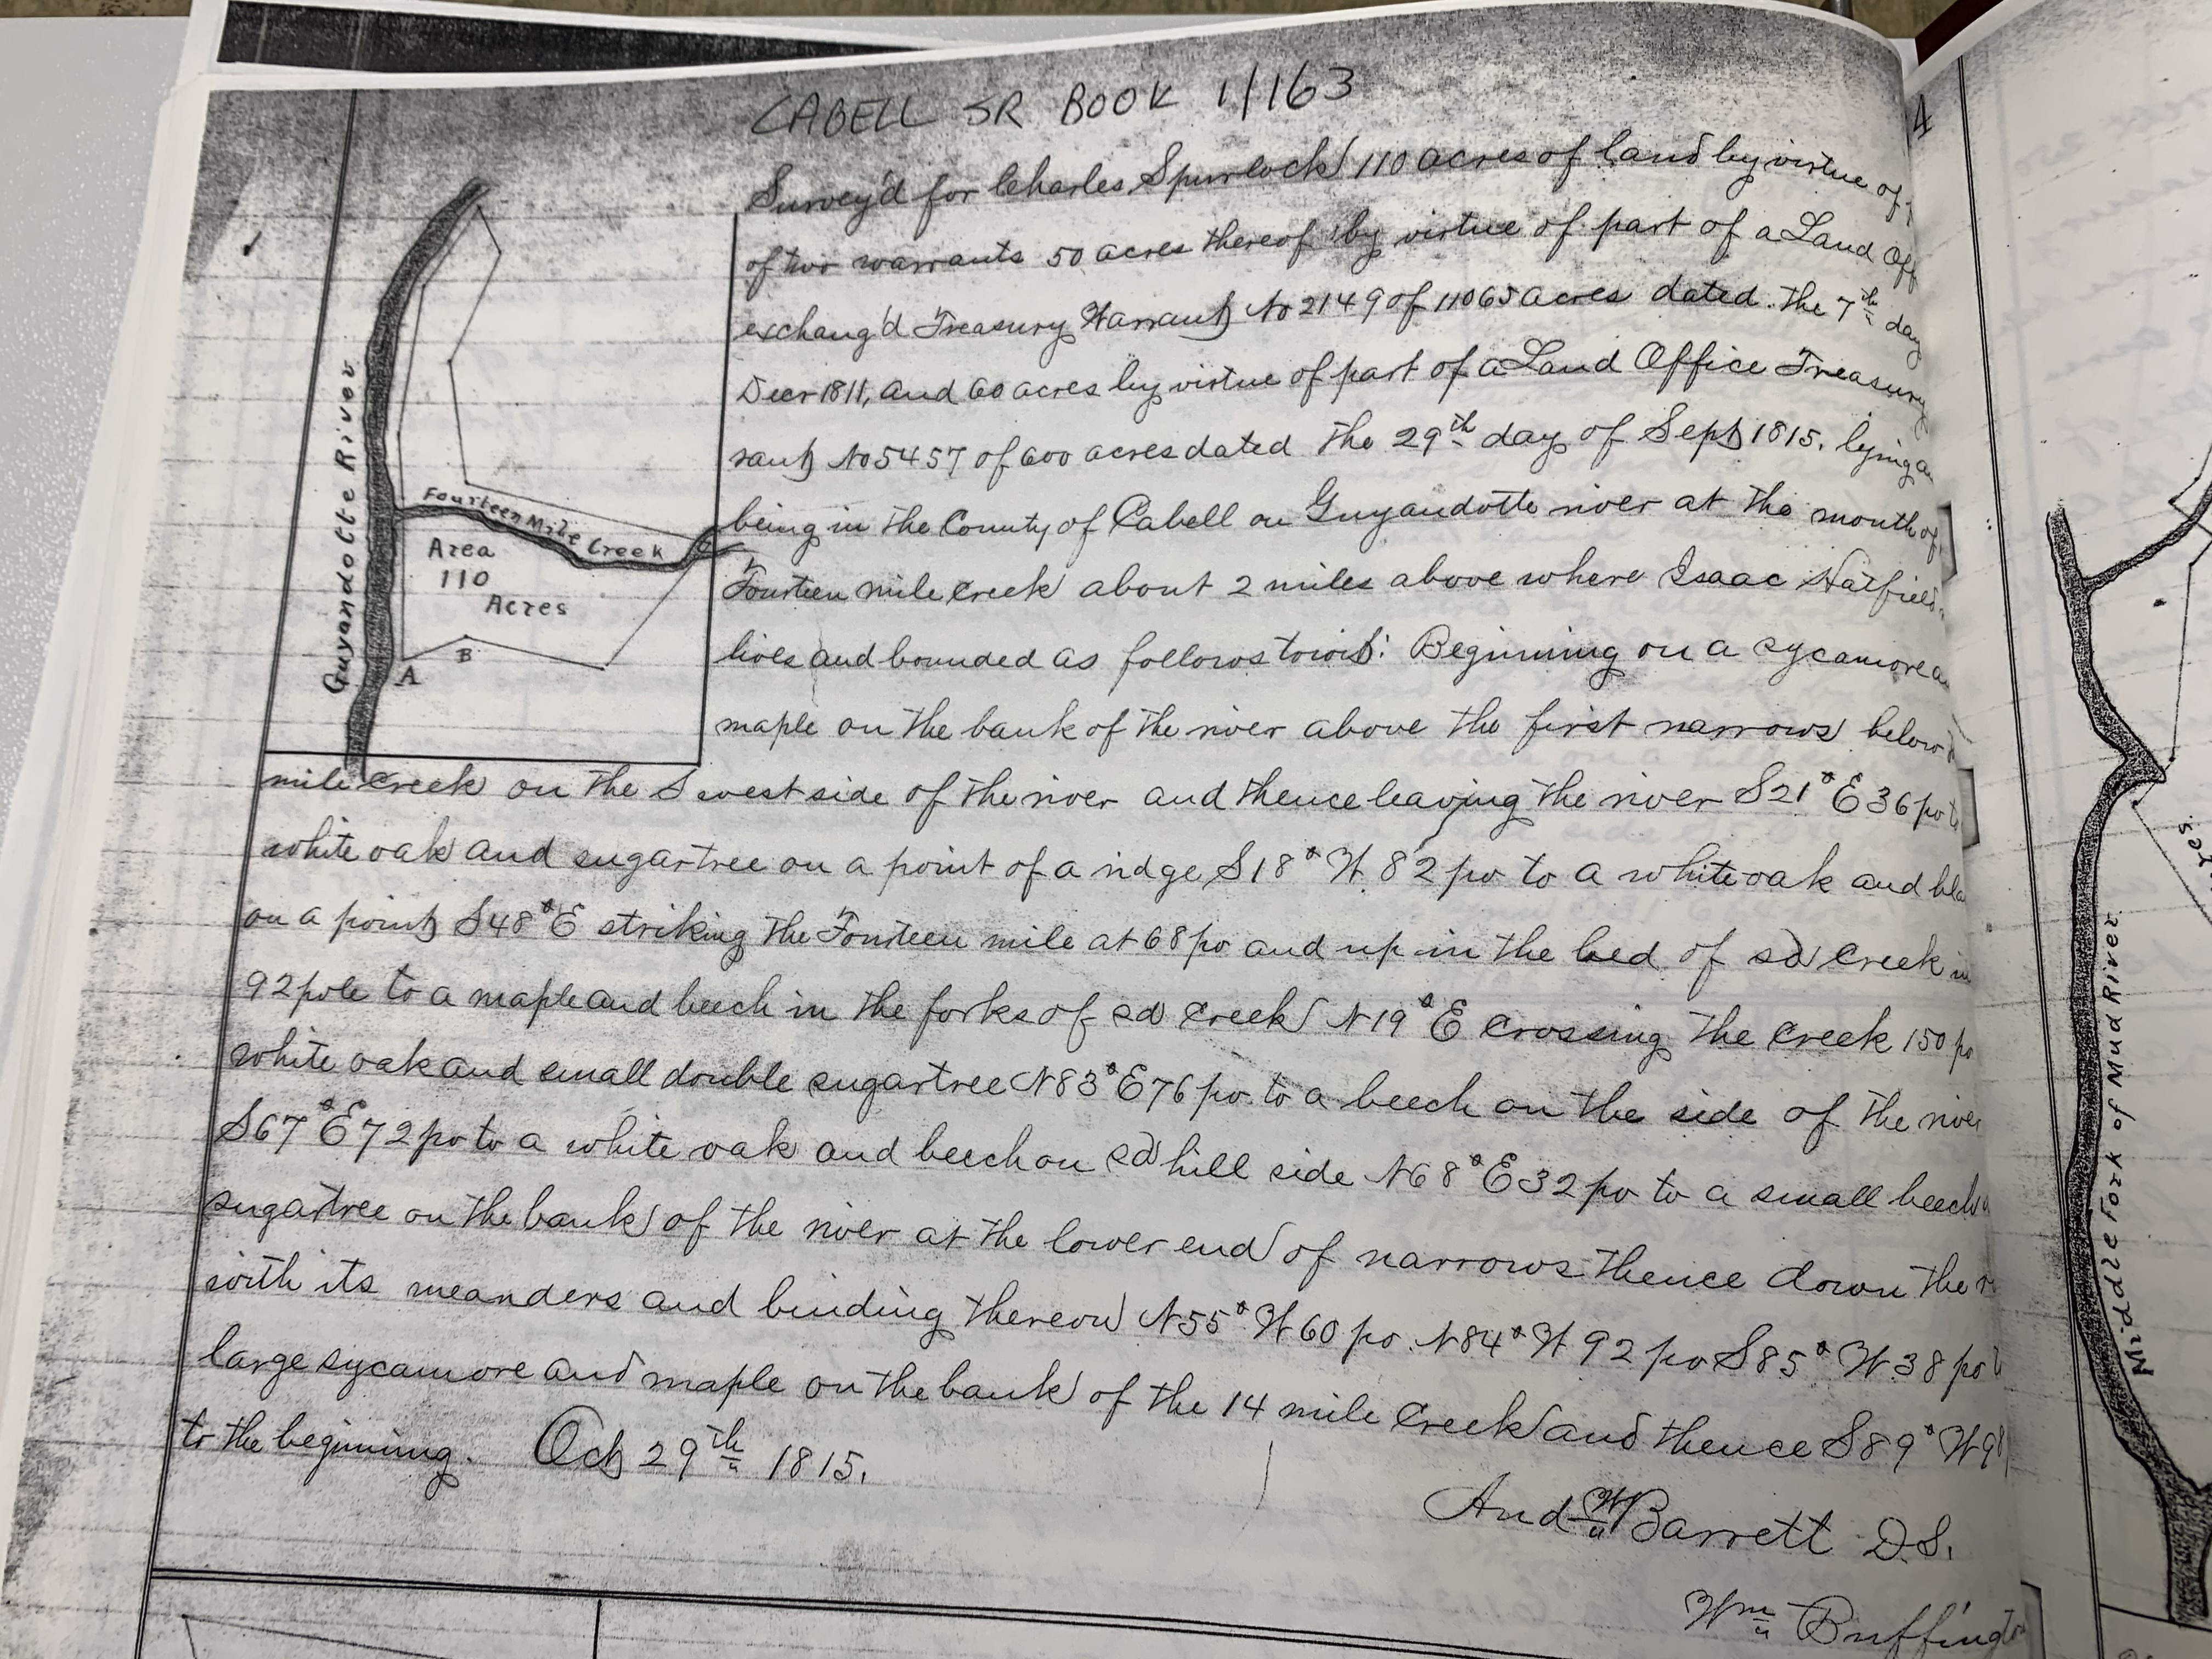 CABELL SR BOOK 1/163
4
Survey'd for Charles Spurlock 110 acres of land by virtue of
of two warrants 50 acres thereof by virtue of part of a Land Off
exchang'd Treasury Warrant No 2149 of 11065 acres dated the 7th day
Decr 1811, and 60 acres by virtue of part of a Land Office Treasury
rant No 5457 of 600 acres dated the 29th day of Sept 1815. lying a
being in the County of Cabell on Guyandotte river at the mouth of
Fourteen mile Creek about 2 miles above where Isaac Hatfield
lives and bounded as follows towit: Beginning on a sycamore a
maple on the bank of the river above the first narrows below
mile Creek on the S west side of the river and thence leaving the river S21°E 36 po t
white oak and sugartree on a point of a ridge S18°W. 82 po to a white oak and bla
on a point S48°E striking the Fourteen mile at 68 po and up in the bed of sd Creek in
92 pole to a maple and beech in the forks of sd Creek N19°E crossing the Creek 150 po
white oak and small double sugartree N83°E 76 po to a beech on the side of the river
S67°E 72 po to a white oak and beech on sd hill side N68°E 32 po to a small beech
sugartree on the bank of the river at the lower end of narrows thence down the r
with its meanders and binding thereon N55°W 60 po N84°W 92 po S85°W. 38 po t
large sycamore and maple on the bank of the 14 mile Creek and thence S89°W 98
to the beginning. Oct 29th 1815.
Andw Barrett D.S.
Wm Buffington
Guyandotte River
Fourteen Mile Creek
Area
110
Acres
A
B
Middle Fork of Mud River